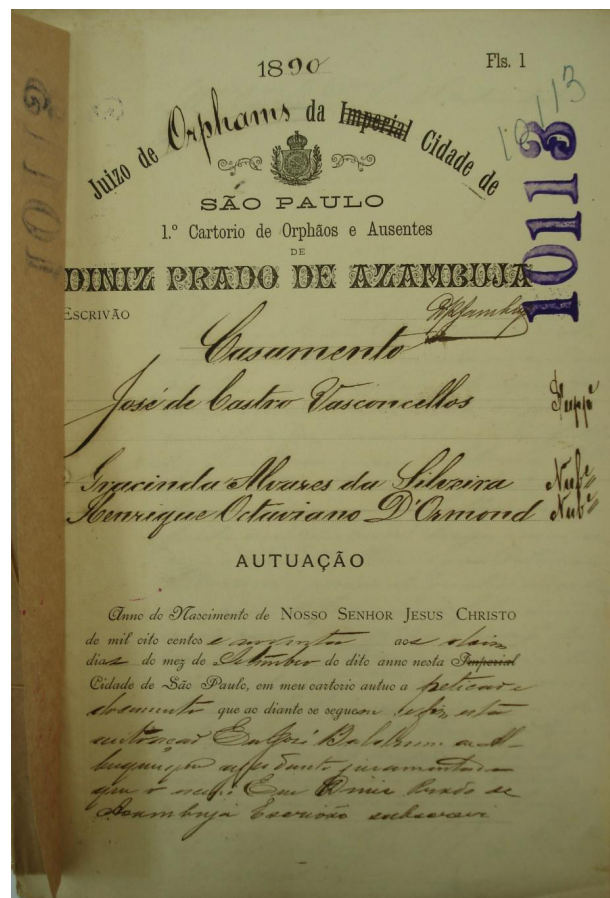 1890
Fls. 1
10113
10113
10113
Juizo de Orphams da Imperial Cidade de
SÃO PAULO
1.º Cartorio de Orphãos e Ausentes
DE
DINIZ PRADO DE AZAMBUJA
ESCRIVÃO
Casamento
José de Castro Vasconcellos Suppe
Gracinda Alvares da Silveira Nube
Henrique Octaviano D'Ormond Nube
AUTUAÇÃO
Anno do Nascimento de NOSSO SENHOR JESUS CHRISTO
de mil oito centos e noventa aos dois
dias do mez de Setembro do dito anno nesta Imperial
Cidade de São Paulo, em meu cartorio autuo a petição e
documento que ao diante se seguem
autuação Eu José
ajudante juramentado
que o escrevi Eu Diniz Prado de
Azambuja Escrivão subscrevi